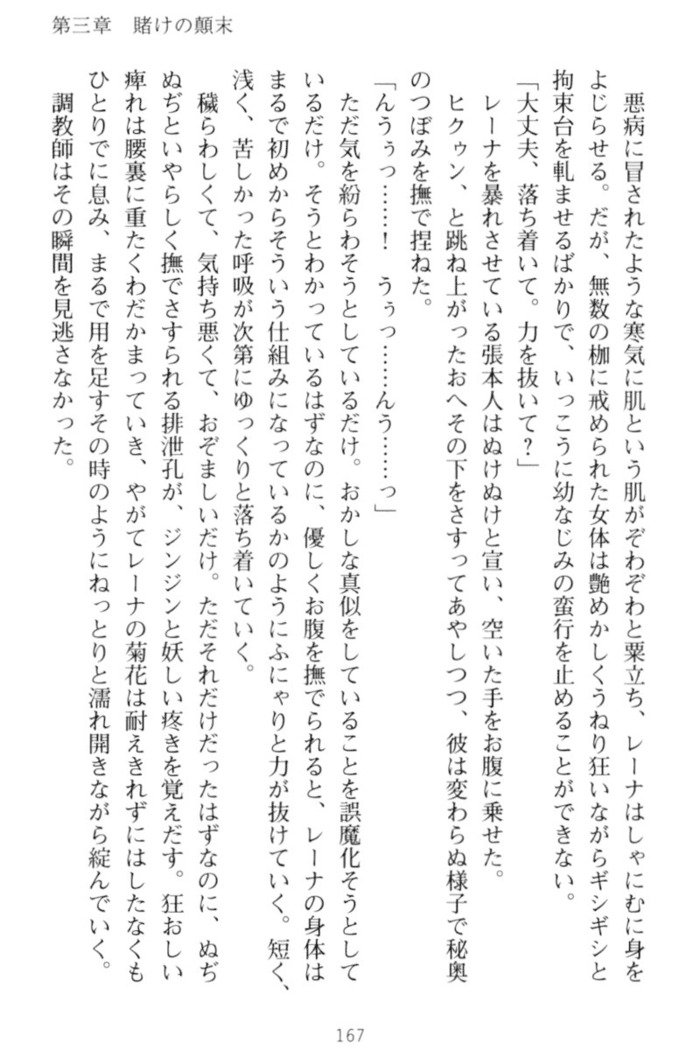 第三章　賭けの顛末
悪病に冒されたような寒気に肌という肌がぞわぞわと粟立ち、レーナはしゃにむに身を
よじらせる。だが、無数の枷に戒められた女体は艶めかしくうねり狂いながらギシギシと
拘束台を軋ませるばかりで、いっこうに幼なじみの蛮行を止めることができない。
「大丈夫、落ち着いて。力を抜いて？」
レーナを暴れさせている張本人はぬけぬけと宣い、空いた手をお腹に乗せた。
ヒクゥン、と跳ね上がったおへその下をさすってあやしつつ、彼は変わらぬ様子で秘奥
のつぼみを撫で捏ねた。
「んうぅっ……！　うぅっ……んう……っ」
ただ気を紛らわそうとしているだけ。おかしな真似をしていることを誤魔化そうとして
いるだけ。そうとわかっているはずなのに、優しくお腹を撫でられると、レーナの身体は
まるで初めからそういう仕組みになっているかのようにふにゃりと力が抜けていく。短く、
浅く、苦しかった呼吸が次第にゆっくりと落ち着いていく。
穢らわしくて、気持ち悪くて、おぞましいだけ。ただそれだけだったはずなのに、ぬぢ
ぬぢといやらしく撫でさすられる排泄孔が、ジンジンと妖しい疼きを覚えだす。狂おしい
痺れは腰裏に重たくわだかまっていき、やがてレーナの菊花は耐えきれずにはしたなくも
ひとりでに息み、まるで用を足すその時のようにねっとりと濡れ開きながら綻んでいく。
調教師はその瞬間を見逃さなかった。
167